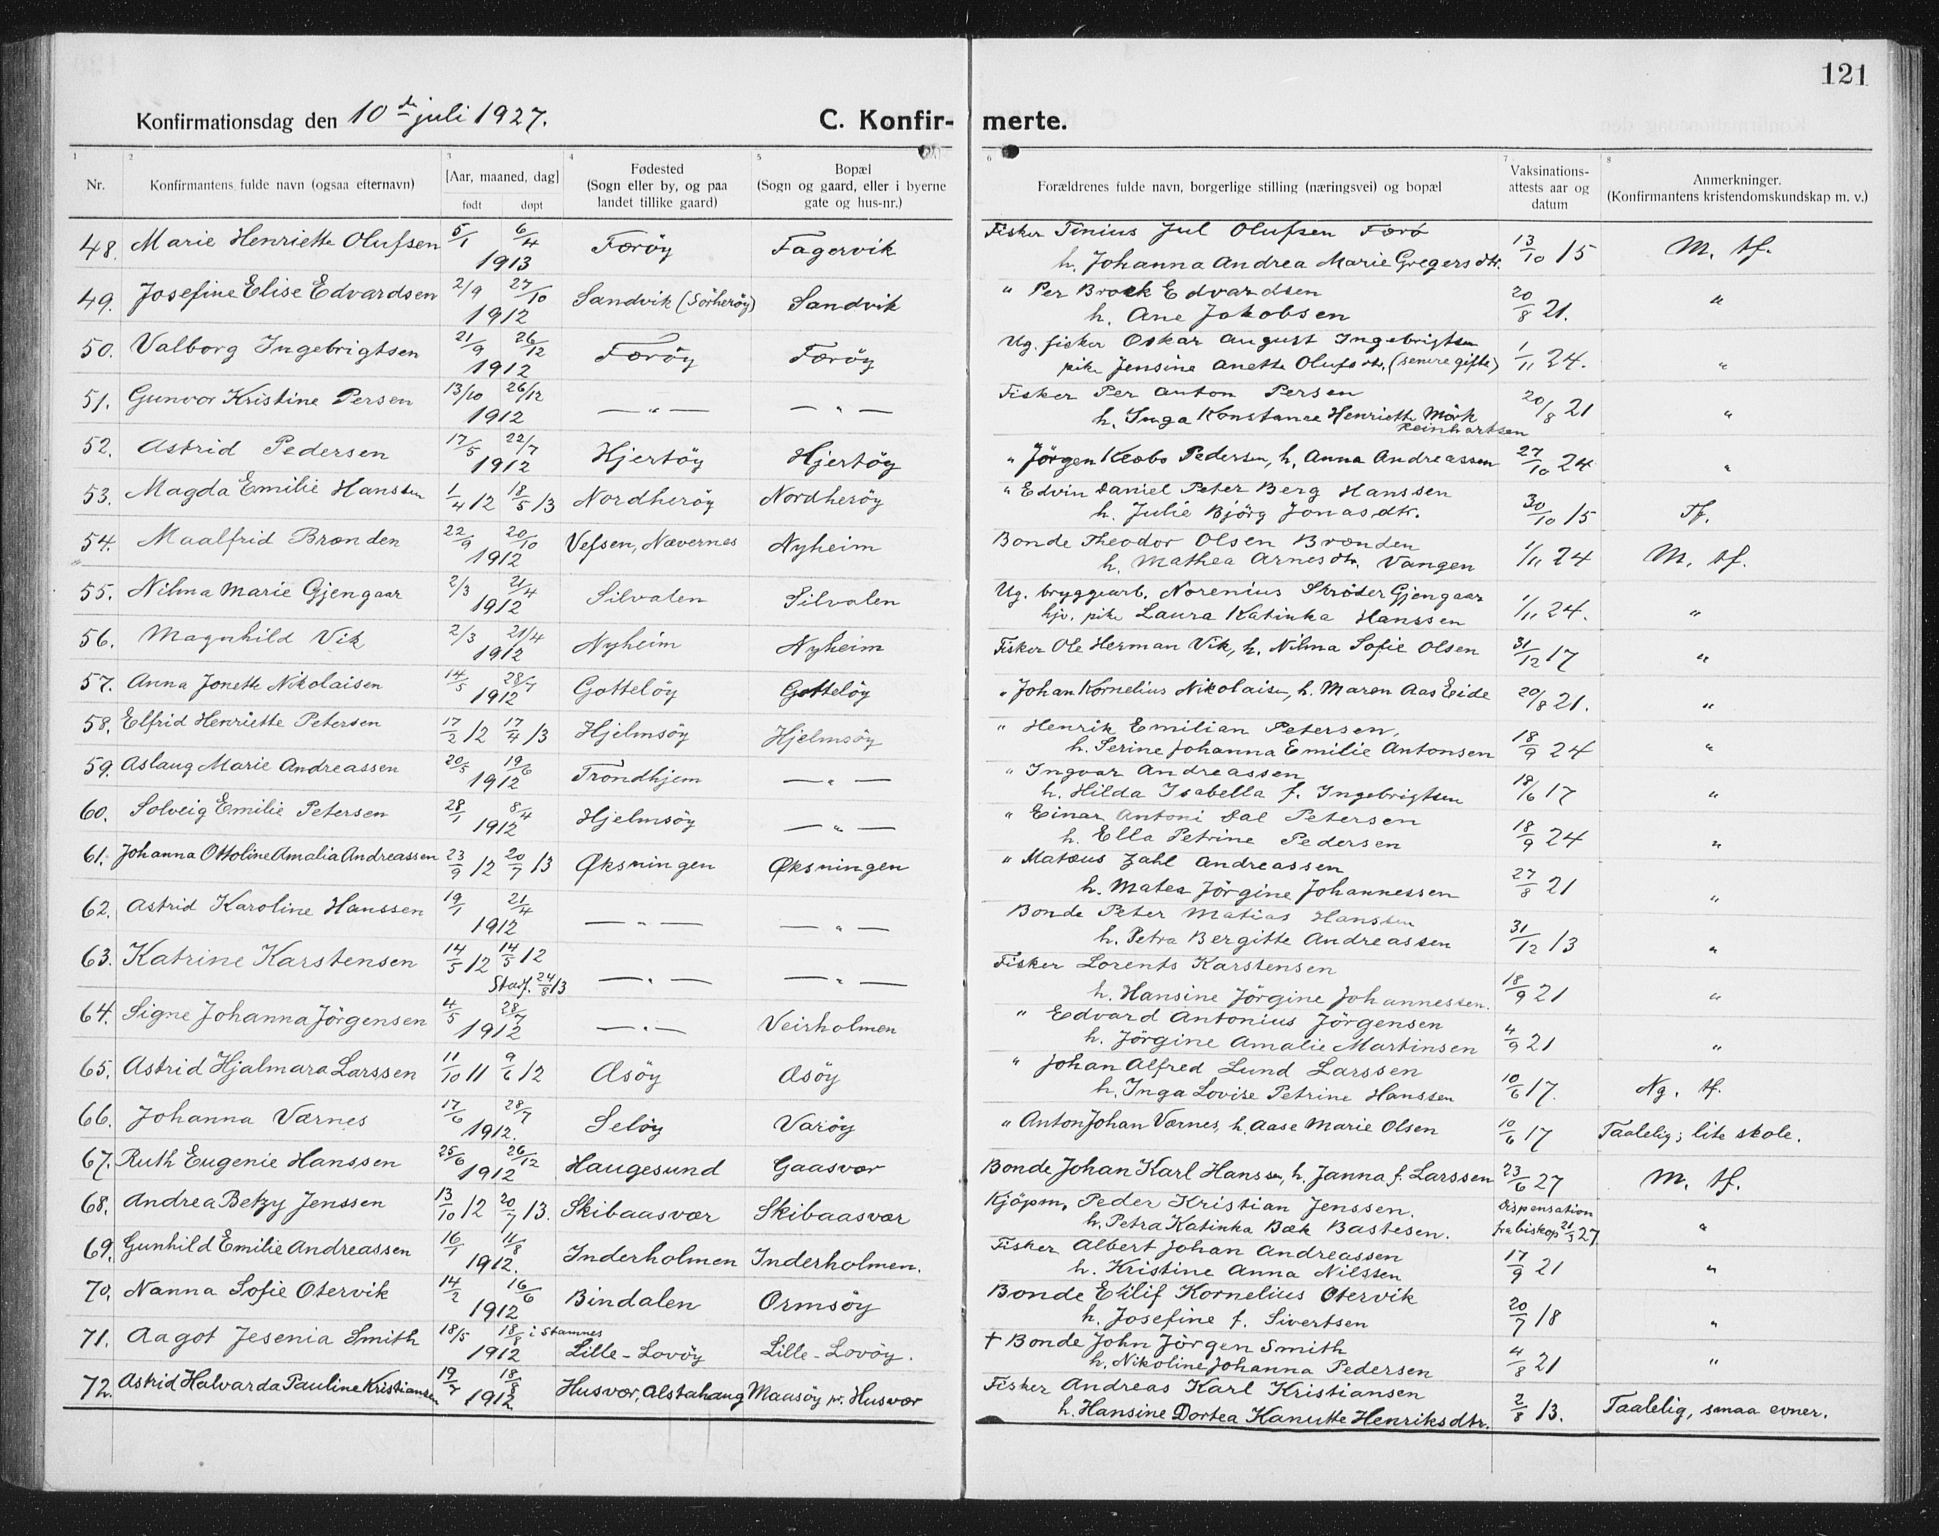 121
Konfirmationsdag den 10de juli 1927. C. Konfir- merte.
1 2 3 4 5 6 7 8
Nr. Konfirmantens fulde navn (ogsaa efternavn) [Aar, maaned, dag] født døpt Fødested (Sogn eller by, og paa landet tillike gaard) Bopæl (Sogn og gaard, eller i byerne gate og hus-nr.) Forældrenes fulde navn, borgerlige stilling (næringsvei) og bopæl Vaksinations-attests aar og datum Anmerkninger. (Konfirmantens kristendomskundskap m. v.)
48. Marie Henriette Olufsen 5/1 6/4 1913 Færöy Fagervik Fisker Tinius Jul Olufsen Færö
h. Johanna Andrea Marie Gregersdtr. 13/10 15 M. tf.
49. Josefine Elise Edvardsen 2/9 27/10 1912 Sandvik (Sörheröy) Sandvik " Per Brock Edvardsen
h. Ane Jakobsen 20/8 21. "
50. Valborg Ingebrigtsen 21/9 26/12 1912 Færöy Færöy Ug. fisker Oskar August Ingebrigtsen
pike Jensine Anette Olufsdtr. (senere gifte) 1/11 24. "
51. Gunvor Kristine Persen 13/10 26/12 1912 — " — — " — Fisker Per Anton Persen
h. Inga Konstanse Henriette Mörk Reinhartsen 20/8 21 "
52. Astrid Pedersen 17/5 22/7 1912 Hjertöy Hjertöy " Jörgen Keobs Pedersen, h. Anna Andreassen 27/10 24 "
53. Magda Emilie Hanssen 1/4 12 18/5 13 Nordheröy Nordheröy " Edvin Daniel Peter Berg Hanssen
h. Julie Björg Jonasdtr. 30/10 15 Tf.
54. Maalfrid Brænden 22/9 20/10 1912 Vefsen, Nævernes Nyheim Bonde Theodor Olsen Brænden
h. Mathea Arnesdtr. Vangen 1/11 24 M. tf.
55. Nilma Marie Gjengaar 2/3 21/4 1912 Silvalen Silvalen Ug. bryggearb. Norenius Ströder Gjengaar
hjv. pike Laura Katinka Hanssen 1/11 24. "
56. Magnhild Vik 2/3 21/4 1912 Nyheim Nyheim Fisker Ole Herman Vik, h. Nilma Sofie Olsen 31/12 17 "
57. Anna Jonette Nikolaisen 14/5 28/7 1912 Gottelöy Gottelöy " Johan Kornelius Nikolaisen, h. Maren Aas Eide 20/8 21. "
58. Elfrid Henriette Petersen 17/2 12 17/4 13 Hjelmsöy Hjelmsöy " Henrik Emilian Petersen,
h. Serine Johanna Emilie Antonsen 18/9 24 "
59. Aslaug Marie Andreassen 20/5 19/6 1912 Trondhjem — " — " Ingvar Andreassen
h. Hilda Isabella f. Ingebrigtsen 18/6 17 "
60. Solveig Emilie Petersen 28/1 8/4 1912 Hjelmsöy — " — " Einar Antoni Dal Petersen
h. Ella Petrine Pedersen 18/9 24 "
61. Johanna Ottoline Amalia Andreassen 23/9 12 20/7 13 Øksningen Øksningen " Matæus Zahl Andreassen
h. Matea Jörgine Johannessen 27/8 21 "
62. Astrid Karoline Hanssen 19/1 21/4 1912 — " — — " — Bonde Peter Matias Hanssen
h. Petra Bergitte Andreassen 31/12 13 "
63. Katrine Karstensen 14/5 12 14/5 12 Stadf. 24/8 13 — " — — " — Fisker Lorents Karstensen
h. Hansine Jörgine Johannessen. 18/9 21 "
64. Signe Johanna Jörgensen 4/5 28/7 1912 — " — Veirholmen " Edvard Antonius Jörgensen
h. Jörgine Amalie Martinsen 4/9 21 "
65. Astrid Hjalmara Larssen 11/10 11 9/6 12 Æsöy Æsöy " Johan Alfred Lund Larssen
h. Inga Lovise Petrine Hanssen 10/6 17. Ng. tf.
66. Johanna Værnes 17/6 28/7 1912. Selöy Varöy " Anton Johan Værnes, h. Aase Marie Olsen 10/6 17 Taalelig; lite skole.
67. Ruth Eugenie Hanssen 25/6 26/12 1912 Haugesund Gaasvær Bonde Johan Karl Hanssen, h. Janna f. Larssen 23/6 27 M. tf.
68. Andrea Betzy Jenssen 13/10 12 20/7 13. Skibaasvær Skibaasvær Kjöpm. Peder Kristian Jenssen.
h. Petra Katinka Bæk Bastesen. Dispensation fra biskop 21/3 27 "
69. Gunhild Emilie Andreassen 16/1 11/8 1912. Inderholmen Inderholmen. Fisker Albert Johan Andreassen
h. Kristine Anna Nilssen 17/9 21 "
70. Nanna Sofie Otervik 14/2 16/6 1912 Bindalen Ormsöy Bonde Eilif Kornelius Otervik
h. Josefine f. Sivertsen 20/7 18 "
71. Aagot Jesenia Smith 18/5 18/8 i Stamnes 1912 Lille-Lovöy Lille-Lovöy. † Bonde John Jörgen Smith
h. Nikoline Johanna Pedersen 4/8 21 "
72. Astrid Halvarda Pauline Kristiansen 19/7 18/8 1912 Husvær, Alstahaug Maasöy pr. Husvær Fisker Andreas Karl Kristiansen
h. Hansine Dortea Kanutte Henriksdtr. 2/8 13. Taalelig, smaa evner.